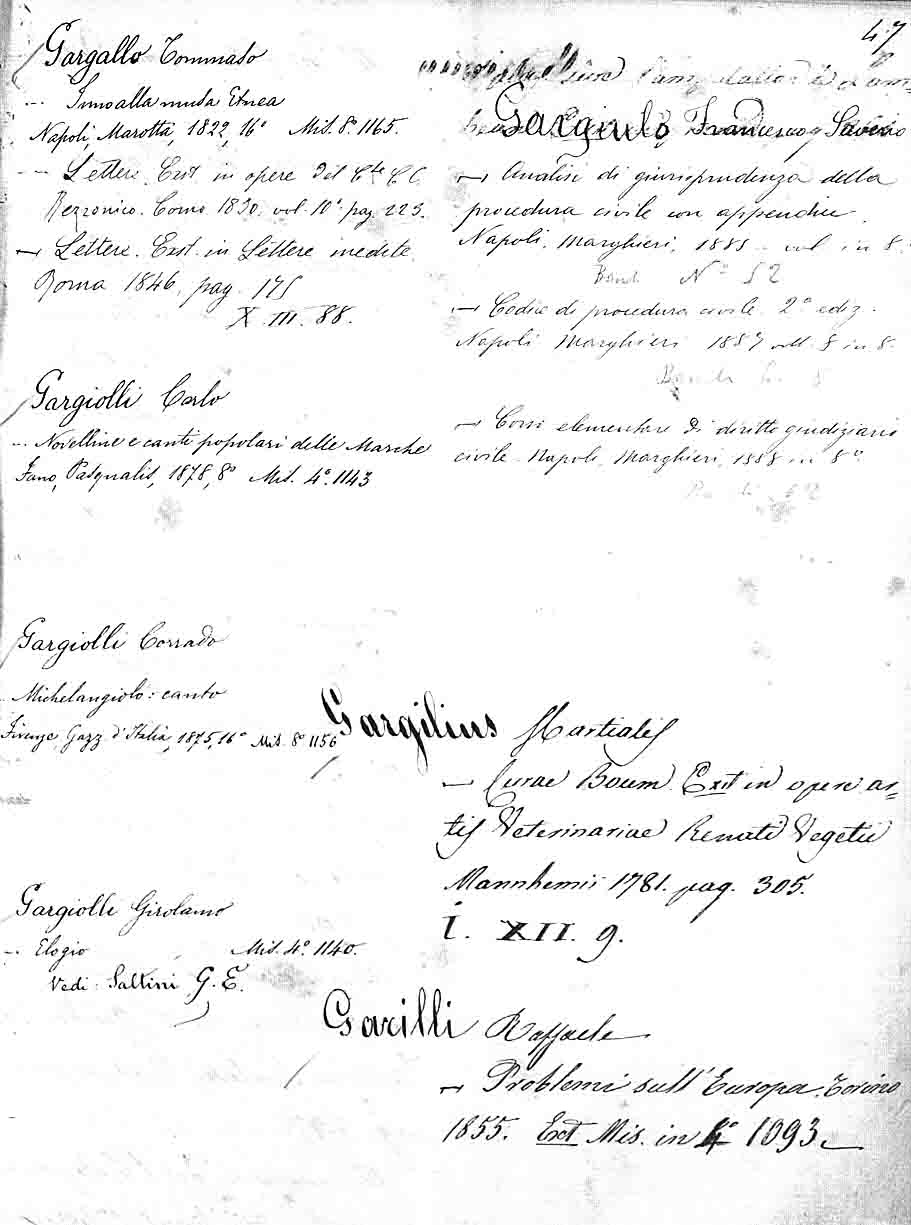 47
Gargallo Tommaso
— Inno alla musa Etnea
Napoli, Marotta, 1822, 16° Mis. 8° 1165.
— Lettere. Exst. in opere del Cte C. C.
Rezzonico. Como 1830. vol. 10° pag. 225.
— Lettere. Exst. in Lettere inedite
Roma 1846, pag. 175
X. III. 88.
Gargiolli Carlo
— Novelline e canti popolari delle Marche
Fano, Pasqualis, 1878, 8° Mis. 4°. 1143
Gargiolli Corrado
Michelangiolo: canto
Firenze, Gazz. d'Italia, 1875, 16° Mis. 8° 1156
Gargiolli Girolamo
— Elogio Mis. 4°. 1140.
Vedi: Saltini G. E.
Gargiulo Francesco Saverio
— Analisi di giurisprudenza della
procedura civile con appendice
Napoli. Marghieri, 1885 - vol in 8°
N° 52
— Codice di procedura civile. 2° ediz.
Napoli Marghieri 1887 voll. in 8.
— Corso elementare di diritto giudiziario
civile. Napoli, Marghieri, 1888 in 8°
Gargilius Martialis
— Curae Boum. Exst in opere ar=
tis Veterinariae Renati Vegetii
Mannhemii 1781. pag. 305.
i. XII. 9.
Garilli Raffaele
— Problemi sull'Europa. Torino
1855. Exst Mis. in 4° 1093.